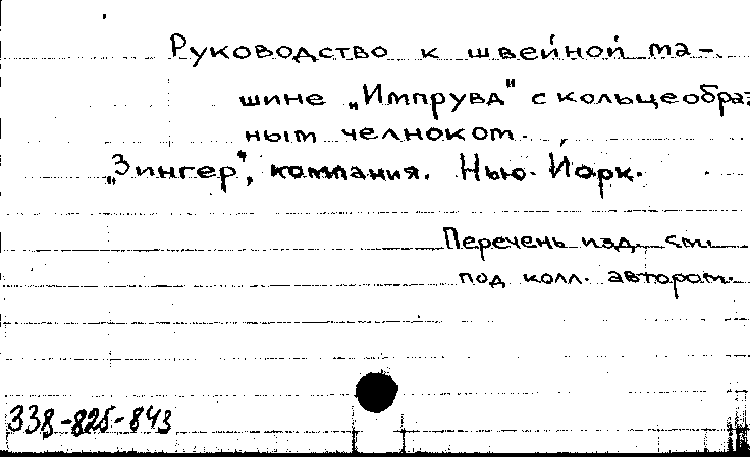 Руководство к швейной ма-
шине „Импрувд" с кольцеобраз-
ным челноком.
„Зингер", компания. Нью-Йорк.
Перечень изд. см.
под колл. автором.
338-825-843